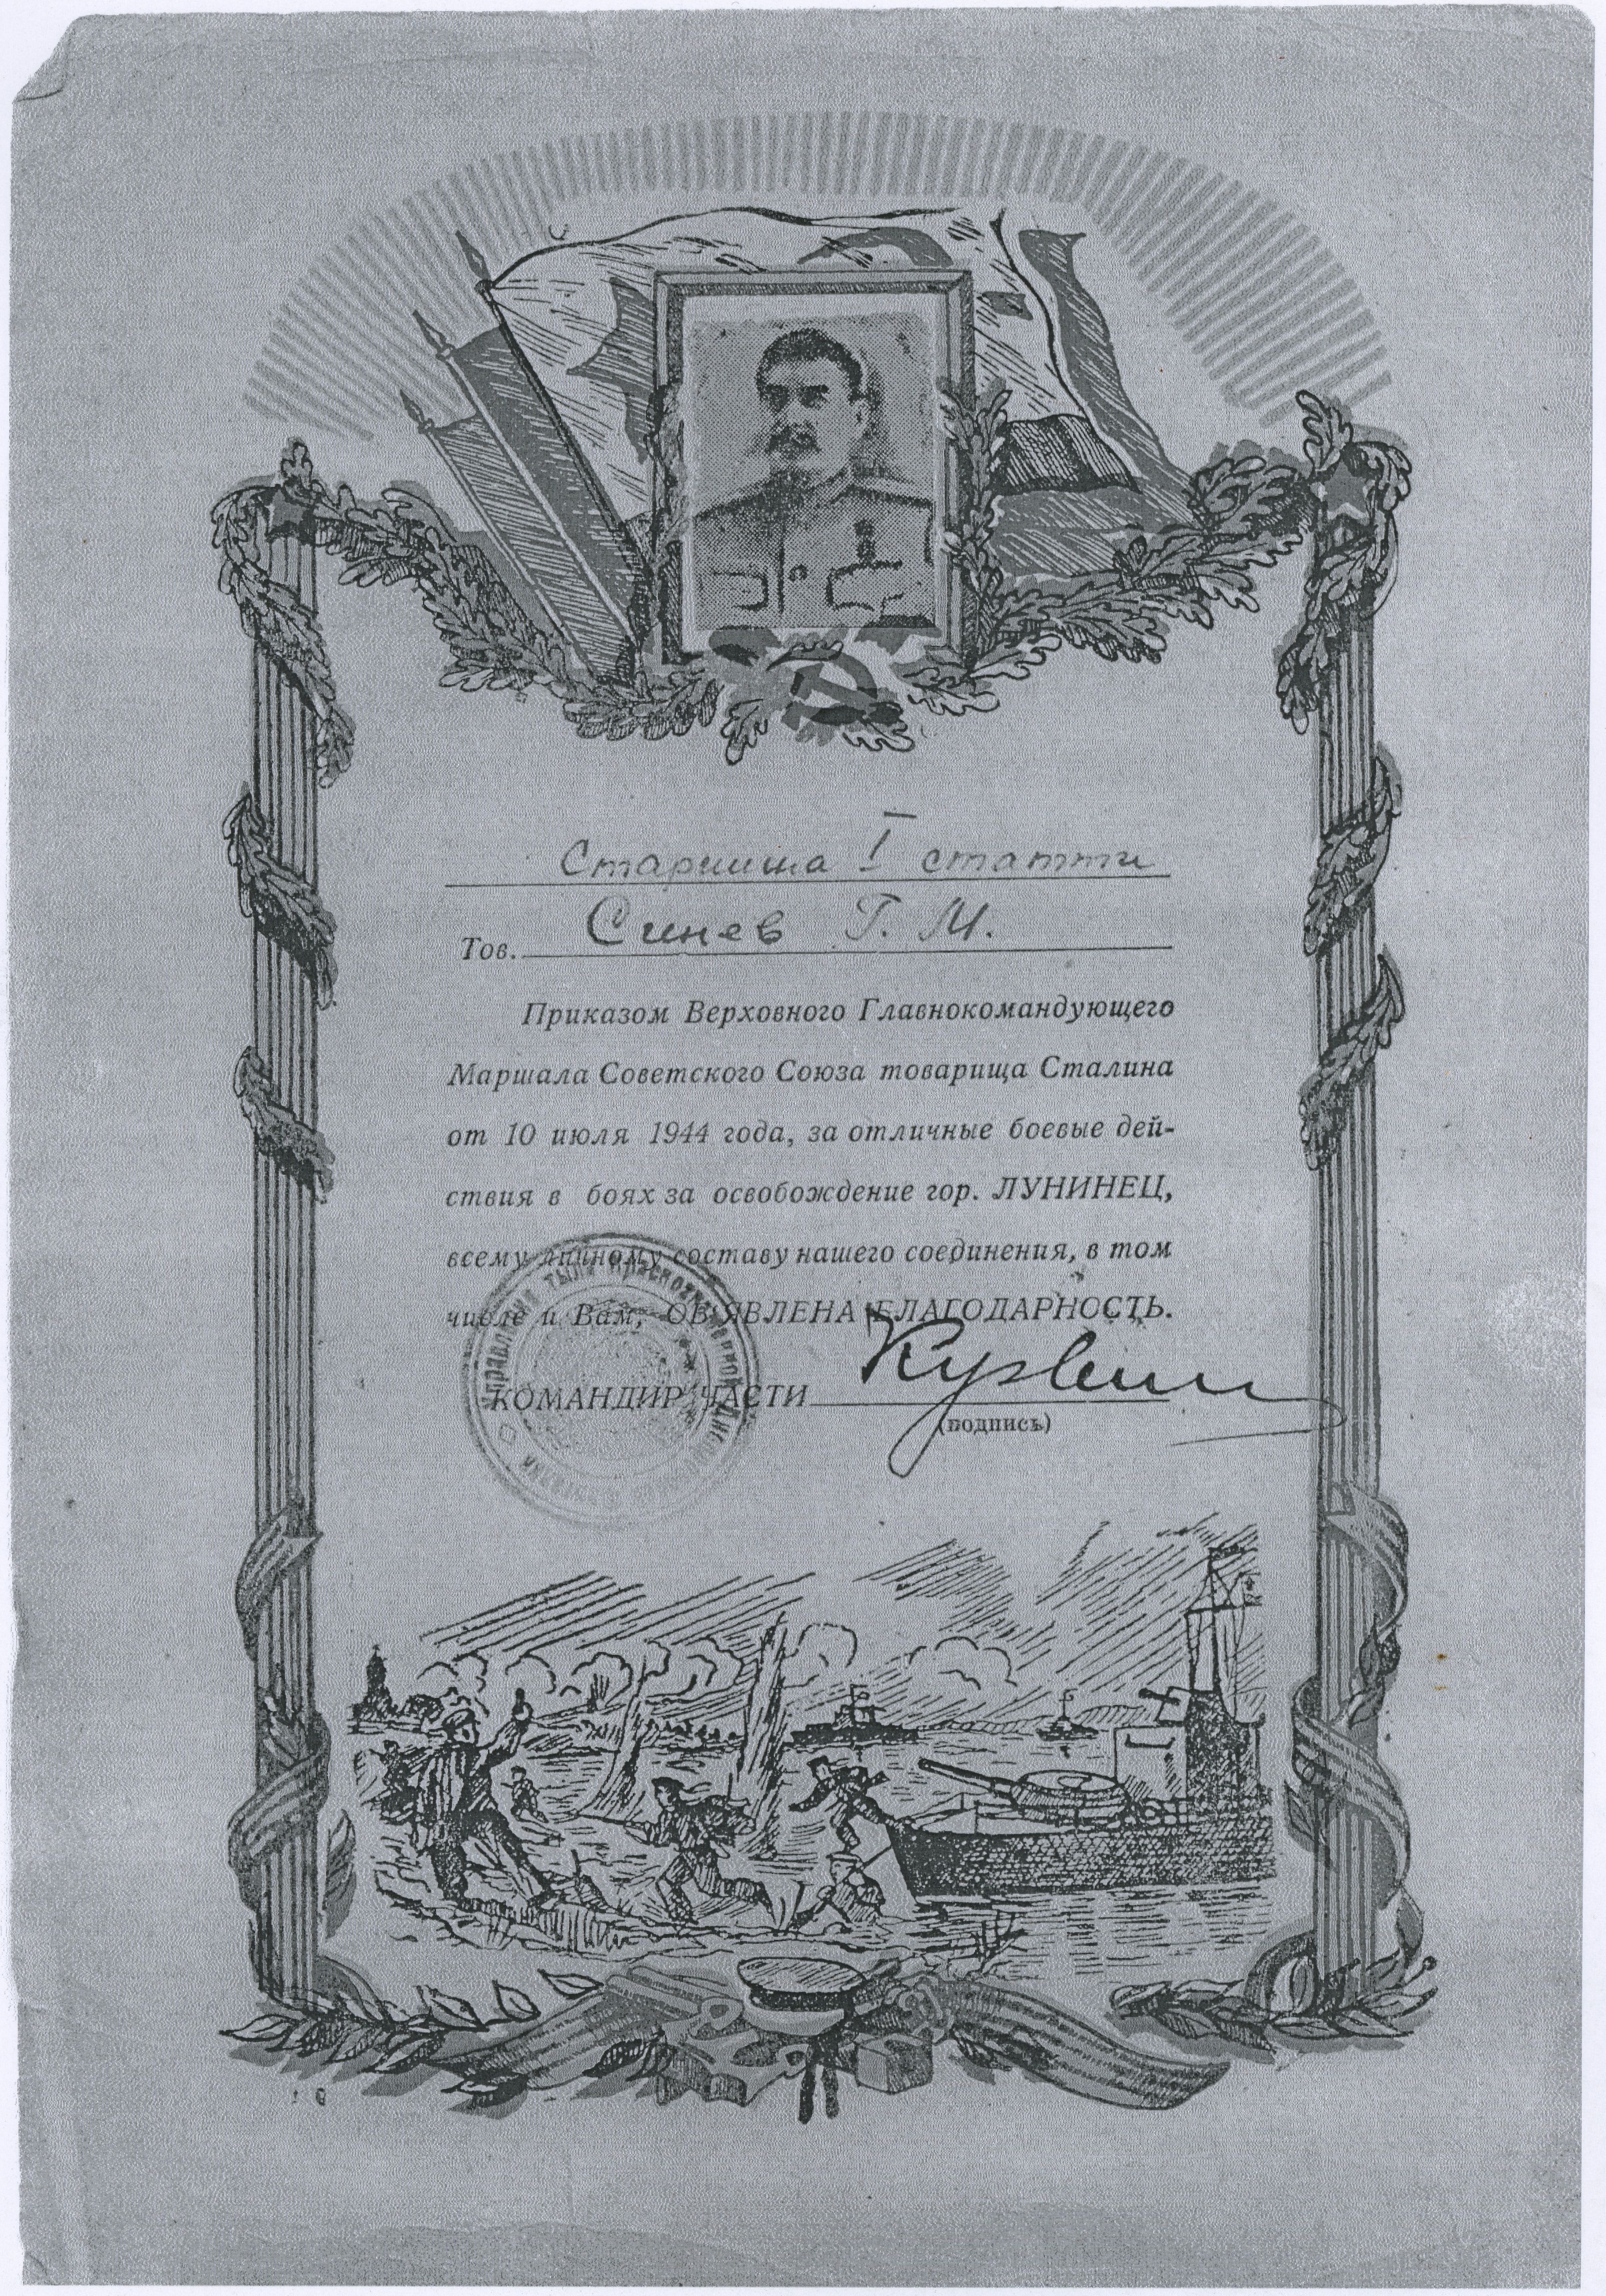 Старшина I статти
Тов. Синев Г. М.
Приказом Верховного Главнокомандующего
Маршала Советского Союза товарища Сталина
от 10 июля 1944 года, за отличные боевые дей-
ствия в боях за освобождение гор. ЛУНИНЕЦ,
всему личному составу нашего соединения, в том
числе и Вам, ОБ'ЯВЛЕНА БЛАГОДАРНОСТЬ.
КОМАНДИР ЧАСТИ
(подпись)
Управление Тыла Краснознаменной Днепровской